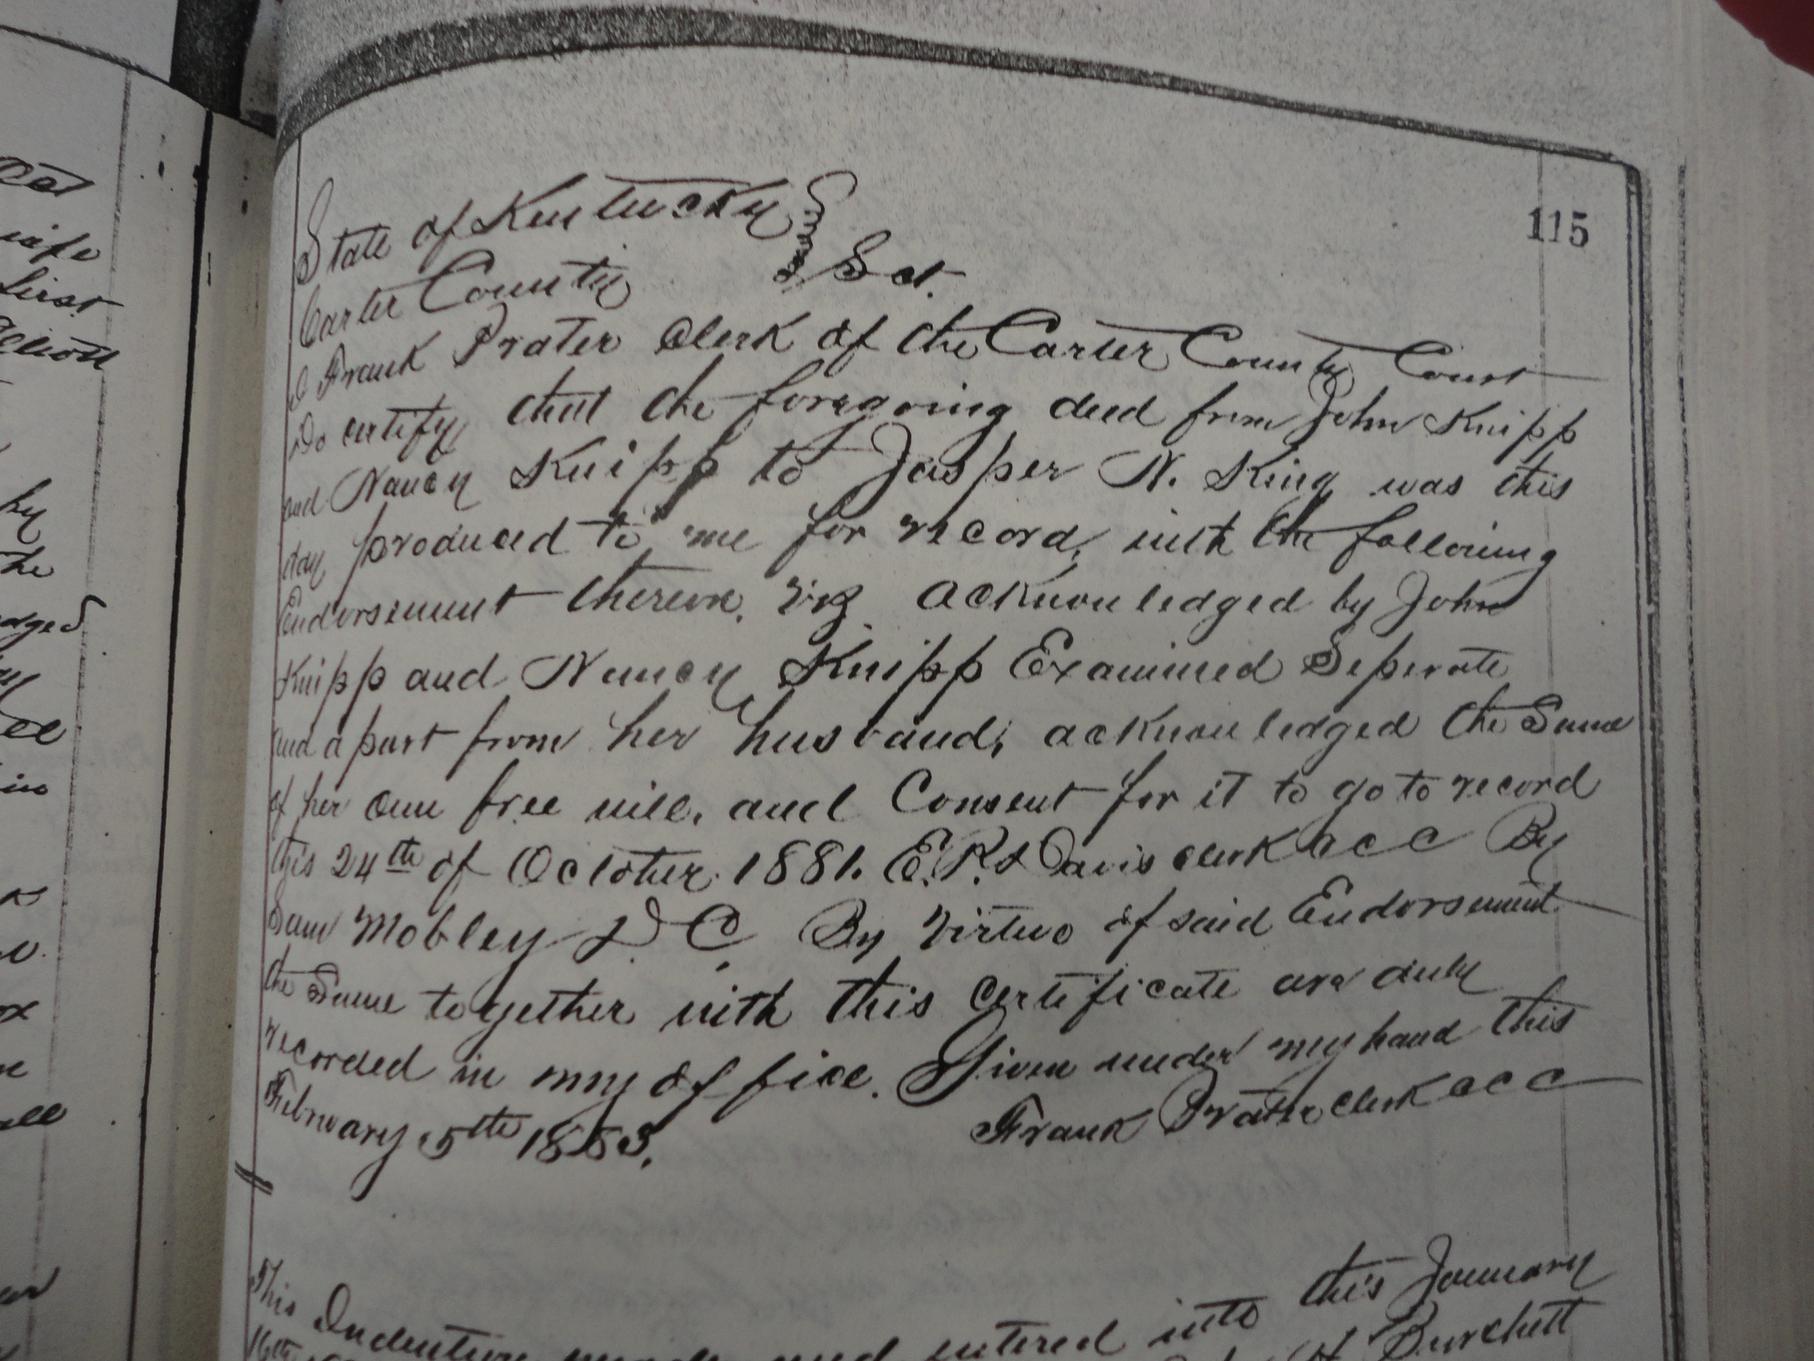 115
State of Kentucky
Carter County Sct.
I Frank Prater Clerk of the Carter County Court
Do certify that the foregoing deed from John Knipp
and Nancy Knipp to Jasper N. King was this
day produced to me for record, with the following
Endorsement thereon, viz. acknowledged by John
Knipp and Nancy Knipp Examined Seperate
and a part from her husband, acknowledged the Same
of her own free will, and Consent for it to go to record
this 24th of October 1881. Davis clerk CCC By
Sam Mobley D. C. By Virtue of said Endorsement
the Same together with this certificate are duly
recorded in my office. Given under my hand this
February 5th 1883. Frank Prater clerk CCC
This Indenture made and entered into this January
16th Burchett
wife
first
Elliott
by
he
in
all